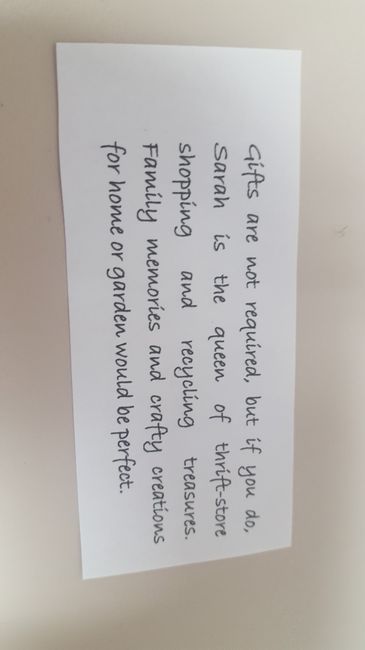 Gifts are not required, but if you do,
Sarah is the queen of thrift-store
shopping and recycling treasures.
Family memories and crafty creations
for home or garden would be perfect.